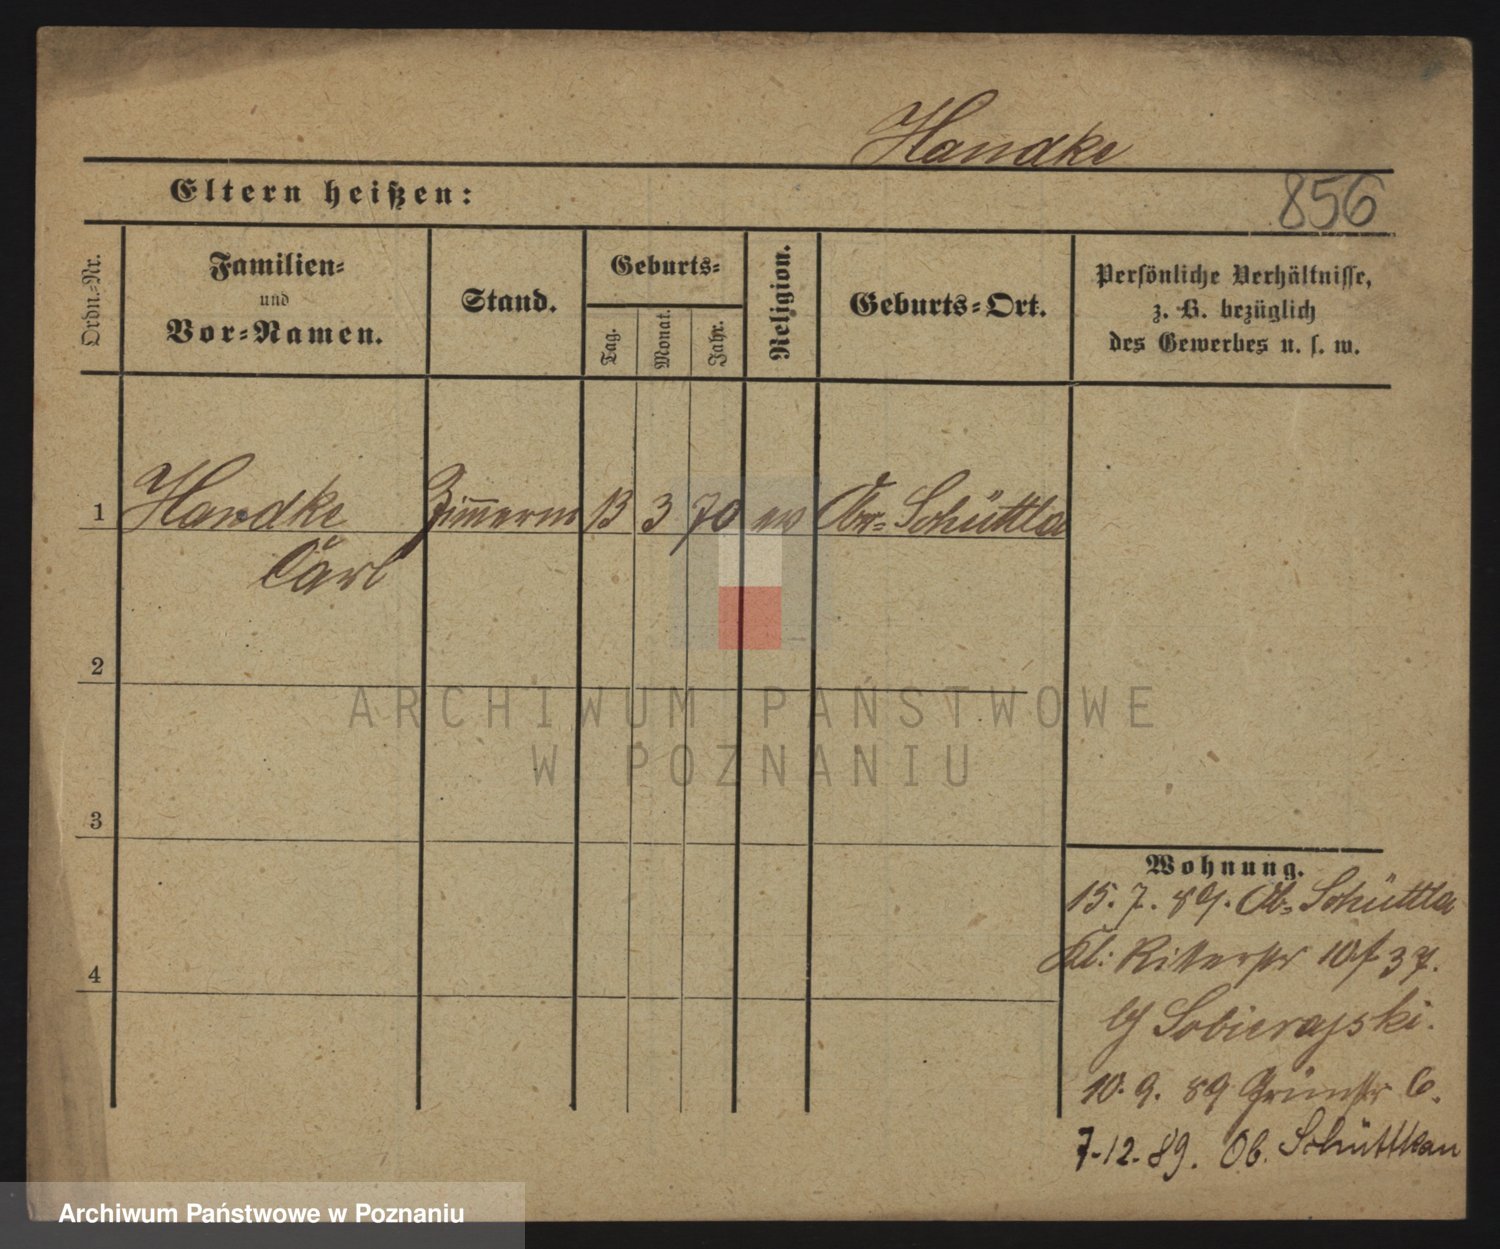 Handke
Eltern heißen:
856
Ordn.-Nr.
Familien-
und
Vor-Namen.
Stand.
Geburts-
Tag.
Monat.
Jahr.
Religion.
Geburts-Ort.
Persönliche Verhältnisse,
z. B. bezüglich
des Gewerbes u. s. w.
1 Handke Zim̅erm 13 3 70 ev Obr-Schüttla
Carl
2
3
4
Wohnung.
15. 7. 89. Ob- Schüttla
Kl: Ritterstr 10
Sobierajski.
10. 9. 89 Grünstr 6.
7-12-89. Ob. Schüttlau
ARCHIWUM PAŃSTWOWE
W POZNANIU
Archiwum Państwowe w Poznaniu